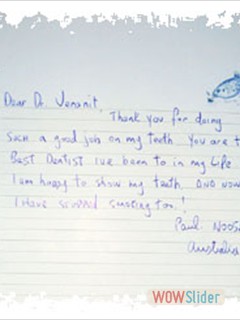 Dear Dr Venanit,
Thank you for doing
such a good job on my teeth. You are t
Best Dentist I've been to in my Life
I am happy to show my teeth, AND NOW
I Have stopped smoking too!
Paul. NOOS
Australia
WOWSlider